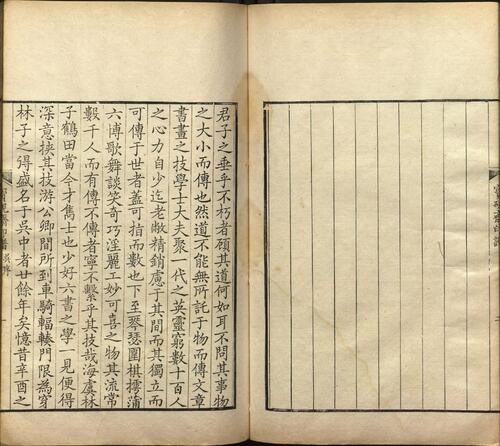 君子之垂乎不朽者顧其道何如耳不問其事物
之大小而傳也然道不能無所託于物而傳文章
書畫之技學士大夫聚一代之英靈窮數十百人
之心力自少迄老敝精銷慮于其間而其獨立而
可傳于世者蓋可指而數也下至琴瑟圍棋摴蒲
六博歌舞談笑奇巧淫麗工妙可喜之物其流常
數千人而有傳不傳者寧不繫乎其技哉海虞林
子鶴田當今才雋士也少好六書之學一見便得
深意挾其技游公卿間所到車騎輻輳門限為穿
林子之得盛名于吳中者廿餘年矣憶昔辛酉之